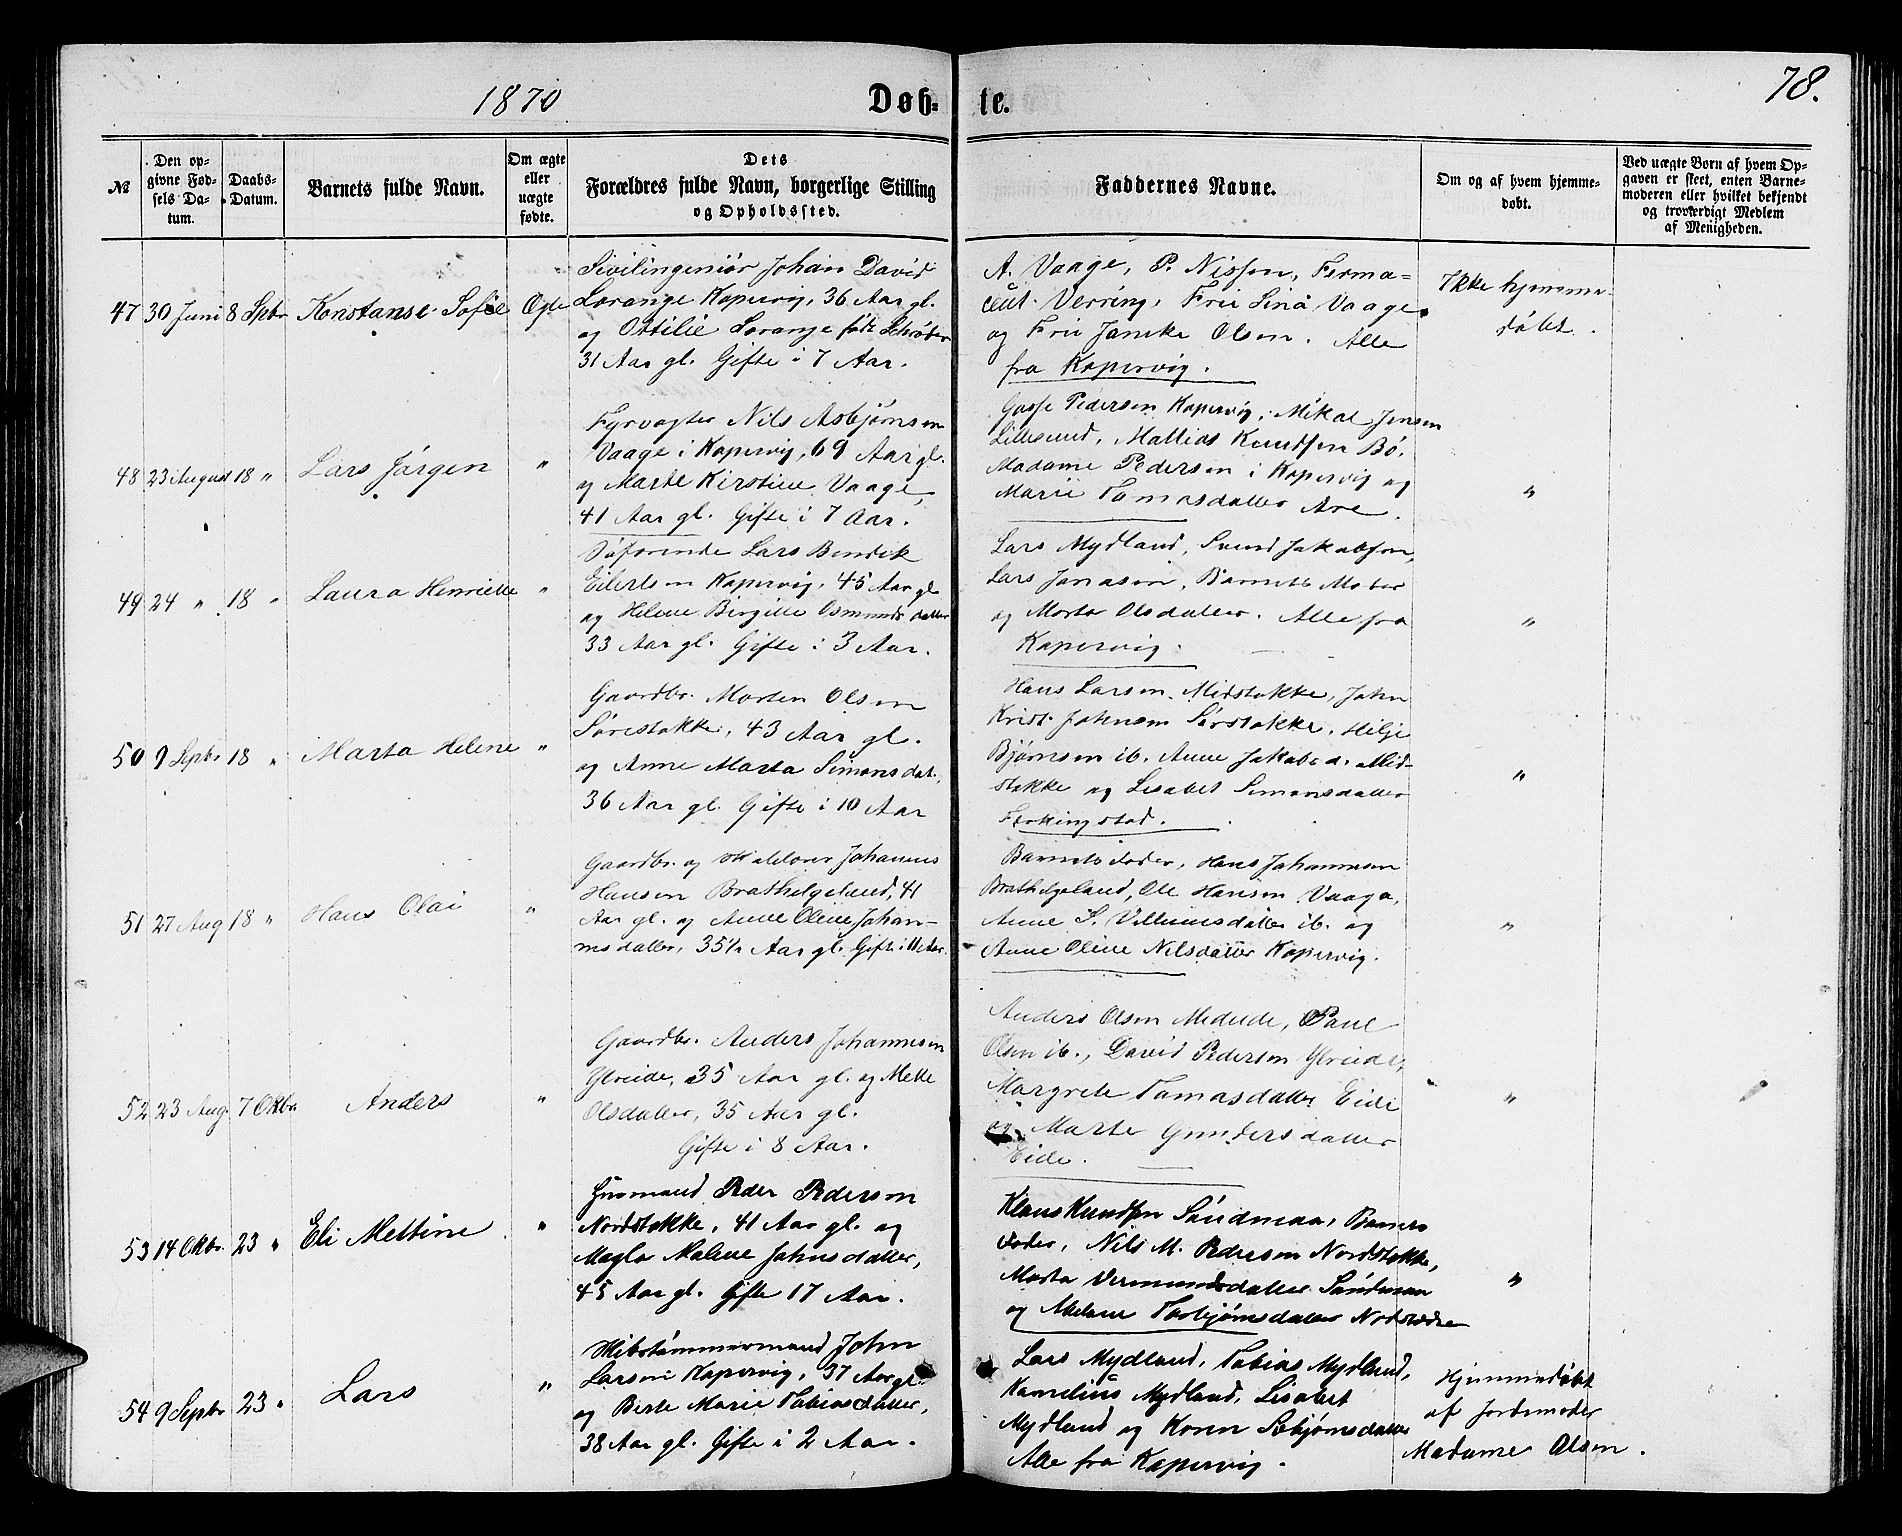 1870
Døb-
te.
78.
№
Den op-
givne Fød-
sels Da-
tum.
Daabs-
Datum.
Barnets fulde Navn.
Om ægte
eller
uægte
fødte.
Dets
Forældres fulde Navn, borgerlige Stilling
og Opholdssted.
Faddernes Navne.
Om og af hvem hjemme-
døbt.
Ved uægte Børn af hvem Op-
gaven er skeet, enten Barne-
moderen eller hvilket bekjendt
og troværdigt Medlem
af Menigheden.
47 30 Juni 8 Spbr Konstanse Sofie Ægte
Sivilingeniør Johan David
Lorange Kopervig, 36 Aar gl.
og Ottilie Lorange født Schrøder
31 Aar gl. Gifte i 7 Aar.
A. Vaage, P. Nissen, Ferma-
ceut Verring, Fru Sina Vaage
og Fru Janike Olsen. Alle
fra Kopervig.
Ikke hjemme
døbt.
48 23 August 18 " Lars Jørgen "
Fyrvogter Nils Asbjørnsen
Vaage i Kopervig, 69 Aar gl.
og Marte Kirstine Vaage,
41 Aar gl. Gifte i 7 Aar.
Pedersen Kopervig, Mikal Jensen
Lillesund, Mattias Knudsen Bø,
Madame Pedersen i Kopervig og
Marie Tomasdatter Are.
"
49 24 " 18 " Laura Henriette "
Søfarende Lars Bendik
Eilertsen Kopervig, 45 Aar gl
og Helene Birgitte Osmundsdatter
33 Aar gl. Gifte i 3 Aar.
Lars Mydland, Svend Jakobsen,
Lars Jonasen, Barnets Moder
og Marta Olsdatter. Alle fra
Kopervig.
"
50 9 Spbr 18 " Marta Helene "
Gaardbr. Morten Olsen
Sørestokke, 43 Aar gl.
og Anne Marta Simonsdat.,
36 Aar gl. Gifte i 10 Aar
Hans Larsen Midstokke, John
Krist. Johnsen Sørstokke, Hilje
Bjørnsen ib. Anne Jakobsd. Mid-
stokke og Lisabet Simonsdatter
Ferkingstad.
"
51 27 Aug 18 " Hans Olai "
Gaardbr. og Johannes
Hansen Brathelgeland, 41
Aar gl. og Anne Oline Johan-
nesdatter, 35½ Aar gl. Gifte i 11 Aar.
Barnets Fader, Hans Johannesen
Brathelgeland, Ole Hansen Vaage,
Anne S. Villumsdatter ib. og
Anne Oline Nilsdatter Kopervig.
"
52 23 Aug. 7 Oktbr Anders "
Gaardbr. Anders Johannesen
Ytreide, 35 Aar gl. og Mette
Olsdatter, 35 Aar gl.
Gifte i 8 Aar.
Anders Olsen Medeide, Paul
Olsen ib., David Pedersen Ytreide,
Margrete Tomasdatter Eide
og Marte Gundersdatter
Eide.
"
53 14 Oktbr. 23 " Eli Mettine "
Husmand Peder Pedersen
Nordstokke, 41 Aar gl. og
Magla Malene Johnsdatter,
45 Aar gl. Gifte 17 Aar.
Klaus Knudsen Sandmaa, Barnets
Fader, Nils M. Pedersen Nordstokke,
Marta Vermundsdatter Sandmaa
og Malene Torbjørnsdatter
"
54 9 Septbr 23 " Lars "
Skibstømmermand John
Larsen Kopervig, 37 Aar gl.
og Berte Marie Tobiasdatter,
38 Aar gl. Gifte i 2 Aar.
Lars Mydland, Tobias Mydland,
Kornelius Mydland, Lisabet
Mydland og Koren
Alle fra Kopervig.
Hjemmedøbt
af Jordemoder
Madame Olsen.